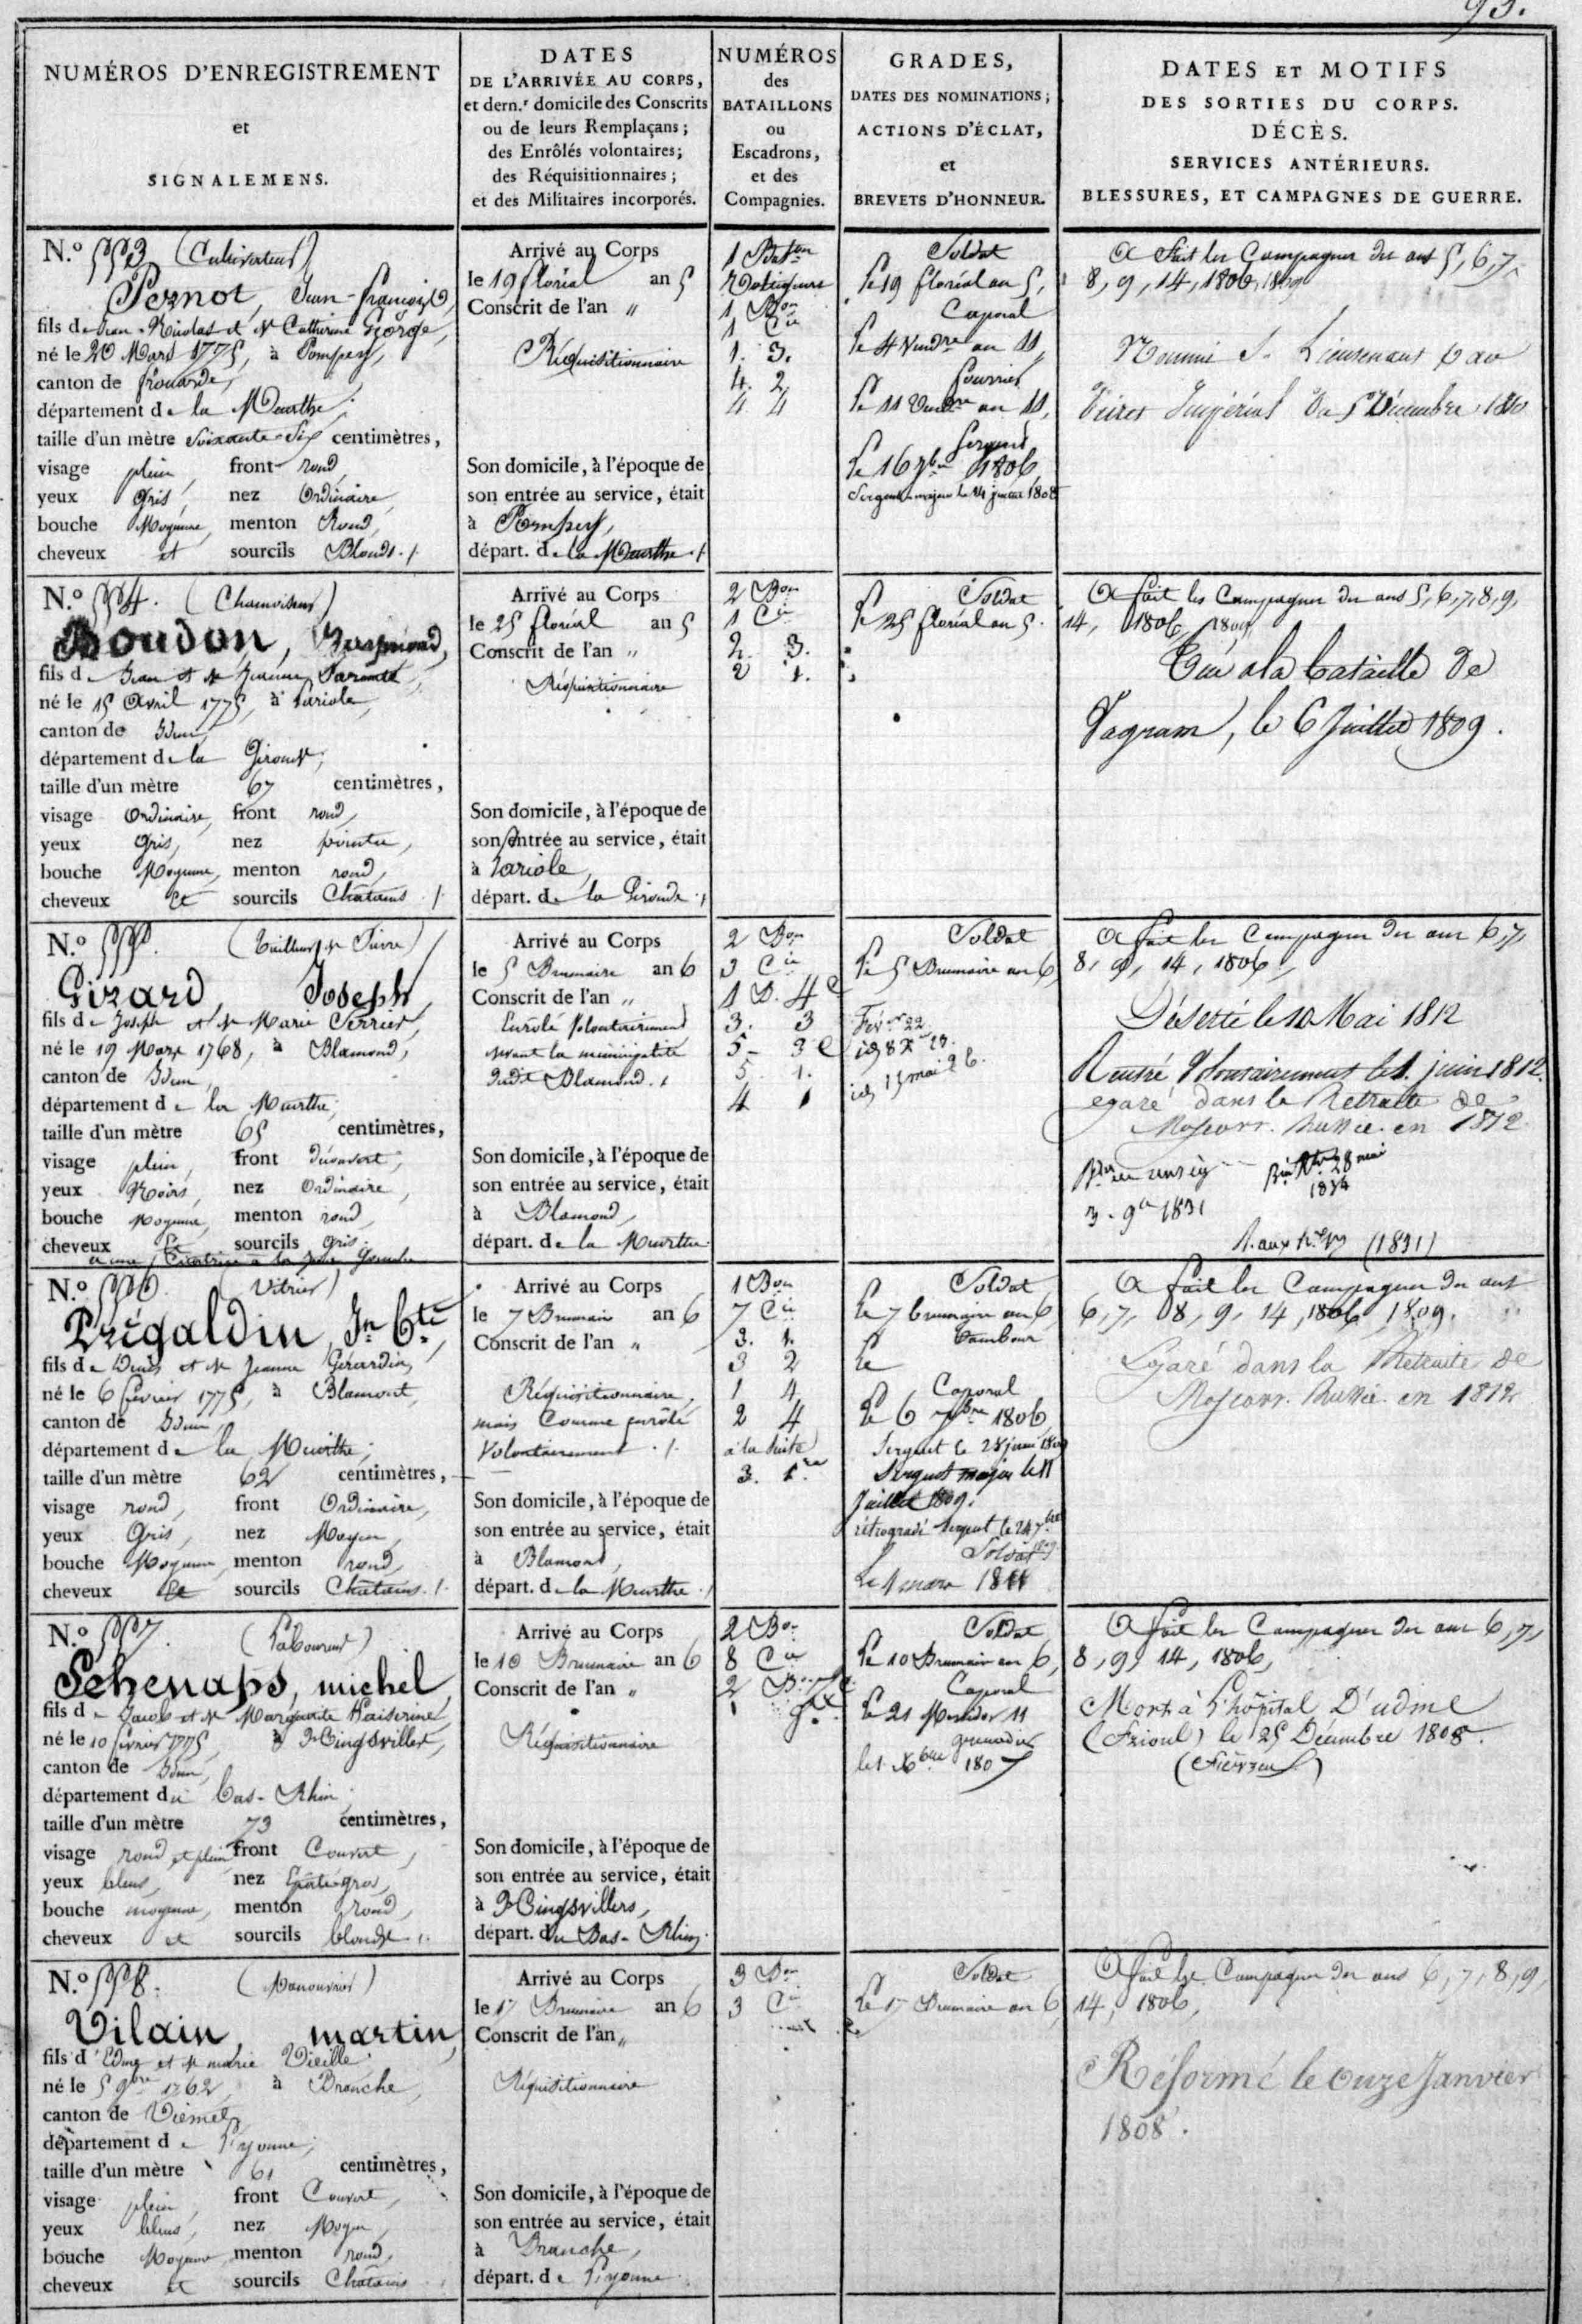 93.
NUMÉROS D'ENREGISTREMENT
et
SIGNALEMENS.
DATES
DE L'ARRIVÉE AU CORPS,
et dern.r domicile des Conscrits
ou de leurs Remplaçans ;
des Enrôlés volontaires;
des Réquisitionnaires ;
et des Militaires incorporés.
NUMÉROS
des
BATAILLONS
ou
Escadrons,
et des
Compagnies.
GRADES,
DATES DES NOMINATIONS ;
ACTIONS D'ÉCLAT,
et
BREVETS D'HONNEUR.
DATES ET MOTIFS
DES SORTIES DU CORPS.
DÉCÈS.
SERVICES ANTÉRIEURS.
BLESSURES, ET CAMPAGNES DE GUERRE.
N.o 553 (Cultivateur)
Pernot, Jean-François,
fils de Jean-Nicolas et de Catherine George,
né le 20 Mars 1775, à Pompey,
canton de frouarde,
département de la Meurthe,
taille d'un mètre Soixante-Six centimètres,
visage plein, front rond,
yeux Gris, nez Ordinaire,
bouche Moyenne, menton Rond,
cheveux et sourcils Blonds./
Arrivé au Corps
le 19 floréal an 5
Conscrit de l'an "
Réquisitionnaire
Son domicile, à l'époque de
son entrée au service, était
à Pompey,
départ. de la Meurthe./
1 Baton
1 Bon
1 Cie
1. 3.
4. 2
4 4
Soldat
le 19 floréal an 5,
Caporal
le 4 Vendre an 11
fourrier
le 11 Vendre an 11,
Sergent
le 16 7bre 1806
Sergent-major le 14 juillet 1808
A fait les Campagnes des ans 5, 6, 7,
8, 9, 14, 1806, 1809
Nommé S. Lieutenant par
Décret Impérial du 5 Décembre 1810
N.o 554. (Chamoiseur)
Boudon, Raymond,
fils de Jean et de Jeanne
né le 15 Avril 1775, à Lariole,
canton de Idem,
département de la Gironde,
taille d'un mètre 67 centimètres,
visage Ordinaire, front rond,
yeux Gris, nez pointu,
bouche Moyenne, menton rond,
cheveux Et sourcils Châtains ./
Arrivé au Corps
le 25 floréal an 5
Conscrit de l'an "
Réquisitionnaire
Son domicile, à l'époque de
son entrée au service, était
à Lariole,
départ. de la Gironde ./
2 Bon
1 Cie
2. 3.
2 1.
Soldat
le 25 floréal an 5.
A fait les Campagnes des ans 5, 6, 7, 8, 9,
14, 1806, 1809
Tué à la bataille de
Vagram, le 6 Juillet 1809.
N.o 555. (Tailleur de Pierre)
Girard, Joseph,
fils de Joseph et de Marie Perrier,
né le 19 Mars 1768, à Blamond,
canton de Idem,
département de la Meurthe,
taille d'un mètre 65 centimètres,
visage plein, front Découvert,
yeux Noirs, nez Ordinaire,
bouche Moyenne, menton rond,
cheveux Et sourcils gris.
a une Cicatrice à la joue Gauche
Arrivé au Corps
le 5 Brumaire an 6
Conscrit de l'an "
Enrôlé Volontairement
devant la municipalité
dudit Blamond./
Son domicile, à l'époque de
son entrée au service, était
à Blamond,
départ. de la Meurthe.
2 Bon
3 Cie
1 D. 4e
3. 3
5 - 3e
5. 1.
4 1
Soldat
le 5 Brumaire an 6,
A fait les Campagnes des ans 6, 7,
8, 9, 14, 1806,
Déserté le 10 Mai 1812
Rentré Volontairement le 1. juin 1812.
egaré dans la Retraite de
Moscou. Russie. en 1812
(1831)
N.o 556. (Vitrier)
Prégaldin, Jn Bte
fils de Denis et de Jeanne Gérardin,
né le 6 février 1775, à Blamont,
canton de Idem,
département de la Meurthe,
taille d'un mètre 62 centimètres,
visage rond, front Ordinaire,
yeux Gris, nez Moyen,
bouche Moyenne, menton rond,
cheveux Et sourcils Châtains ./
Arrivé au Corps
le 7 Brumaire an 6
Conscrit de l'an "
Réquisitionnaire,
mais Comme enrôlé
Volontairement ./.
Son domicile, à l'époque de
son entrée au service, était
à Blamond,
départ. de la Meurthe ./
1 Bon
7 Cie
3. 1.
3 2
1 4
2 4
à la Suite
3. 1re
Soldat
le 7 brumaire an 6
Tambour
le
Caporal
le 6 7bre 1806
Sergent le 28 juin 1809
Sergent major le 11
Juillet 1809.
rétrogradé Sergent le 24 7bre
Soldat
Le 1 mars 1811
A fait les Campagnes des ans
6, 7, 8, 9, 14, 1806, 1809.
Egaré dans la Retraite de
Moscou. Russie. en 1812
N.o 557. (Laboureur)
Schenaps, michel,
fils de Jacob et de Marguerite Kaiserine,
né le 10 février 1775, à Dingsvillers,
canton de Idem,
département du bas-Rhin,
taille d'un mètre 73 centimètres,
visage rond et plein, front Couvert,
yeux bleus, nez Epaté gros,
bouche moyenne, menton rond,
cheveux et sourcils blonds ./.
Arrivé au Corps
le 10 Brumaire an 6
Conscrit de l'an "
Réquisitionnaire
Son domicile, à l'époque de
son entrée au service, était
à Dingsvillers,
départ. du Bas-Rhin.
2 Bon
8 Cie
Soldat
le 10 Brumaire an 6,
Caporal
le 21 Messidor 11
grenadier
le 1. Xbre 1807
A fait les Campagnes des ans 6, 7,
8, 9, 14, 1806,
Mort à l'hôpital D'udine
(Frioul) le 25 Décembre 1808.
(fièvreux)
N.o 558. (Manouvrier)
Vilain, martin,
fils d'Edme et de marie Vieille.
né le 5 9bre 1762 à Branche,
canton de
département de l'yonne,
taille d'un mètre 61 centimètres,
visage plein, front Couvert,
yeux bleus, nez Moyen,
bouche Moyenne, menton rond,
cheveux et sourcils Châtains
Arrivé au Corps
le 17 Brumaire an 6
Conscrit de l'an "
Réquisitionnaire
Son domicile, à l'époque de
son entrée au service, était
à Branche,
départ. de l'yonne.
3 Bon
3 Cie
Soldat
le 17 Brumaire an 6,
A fait les Campagnes des ans 6, 7, 8, 9,
14, 1806,
Réformé le onze Janvier
1808.